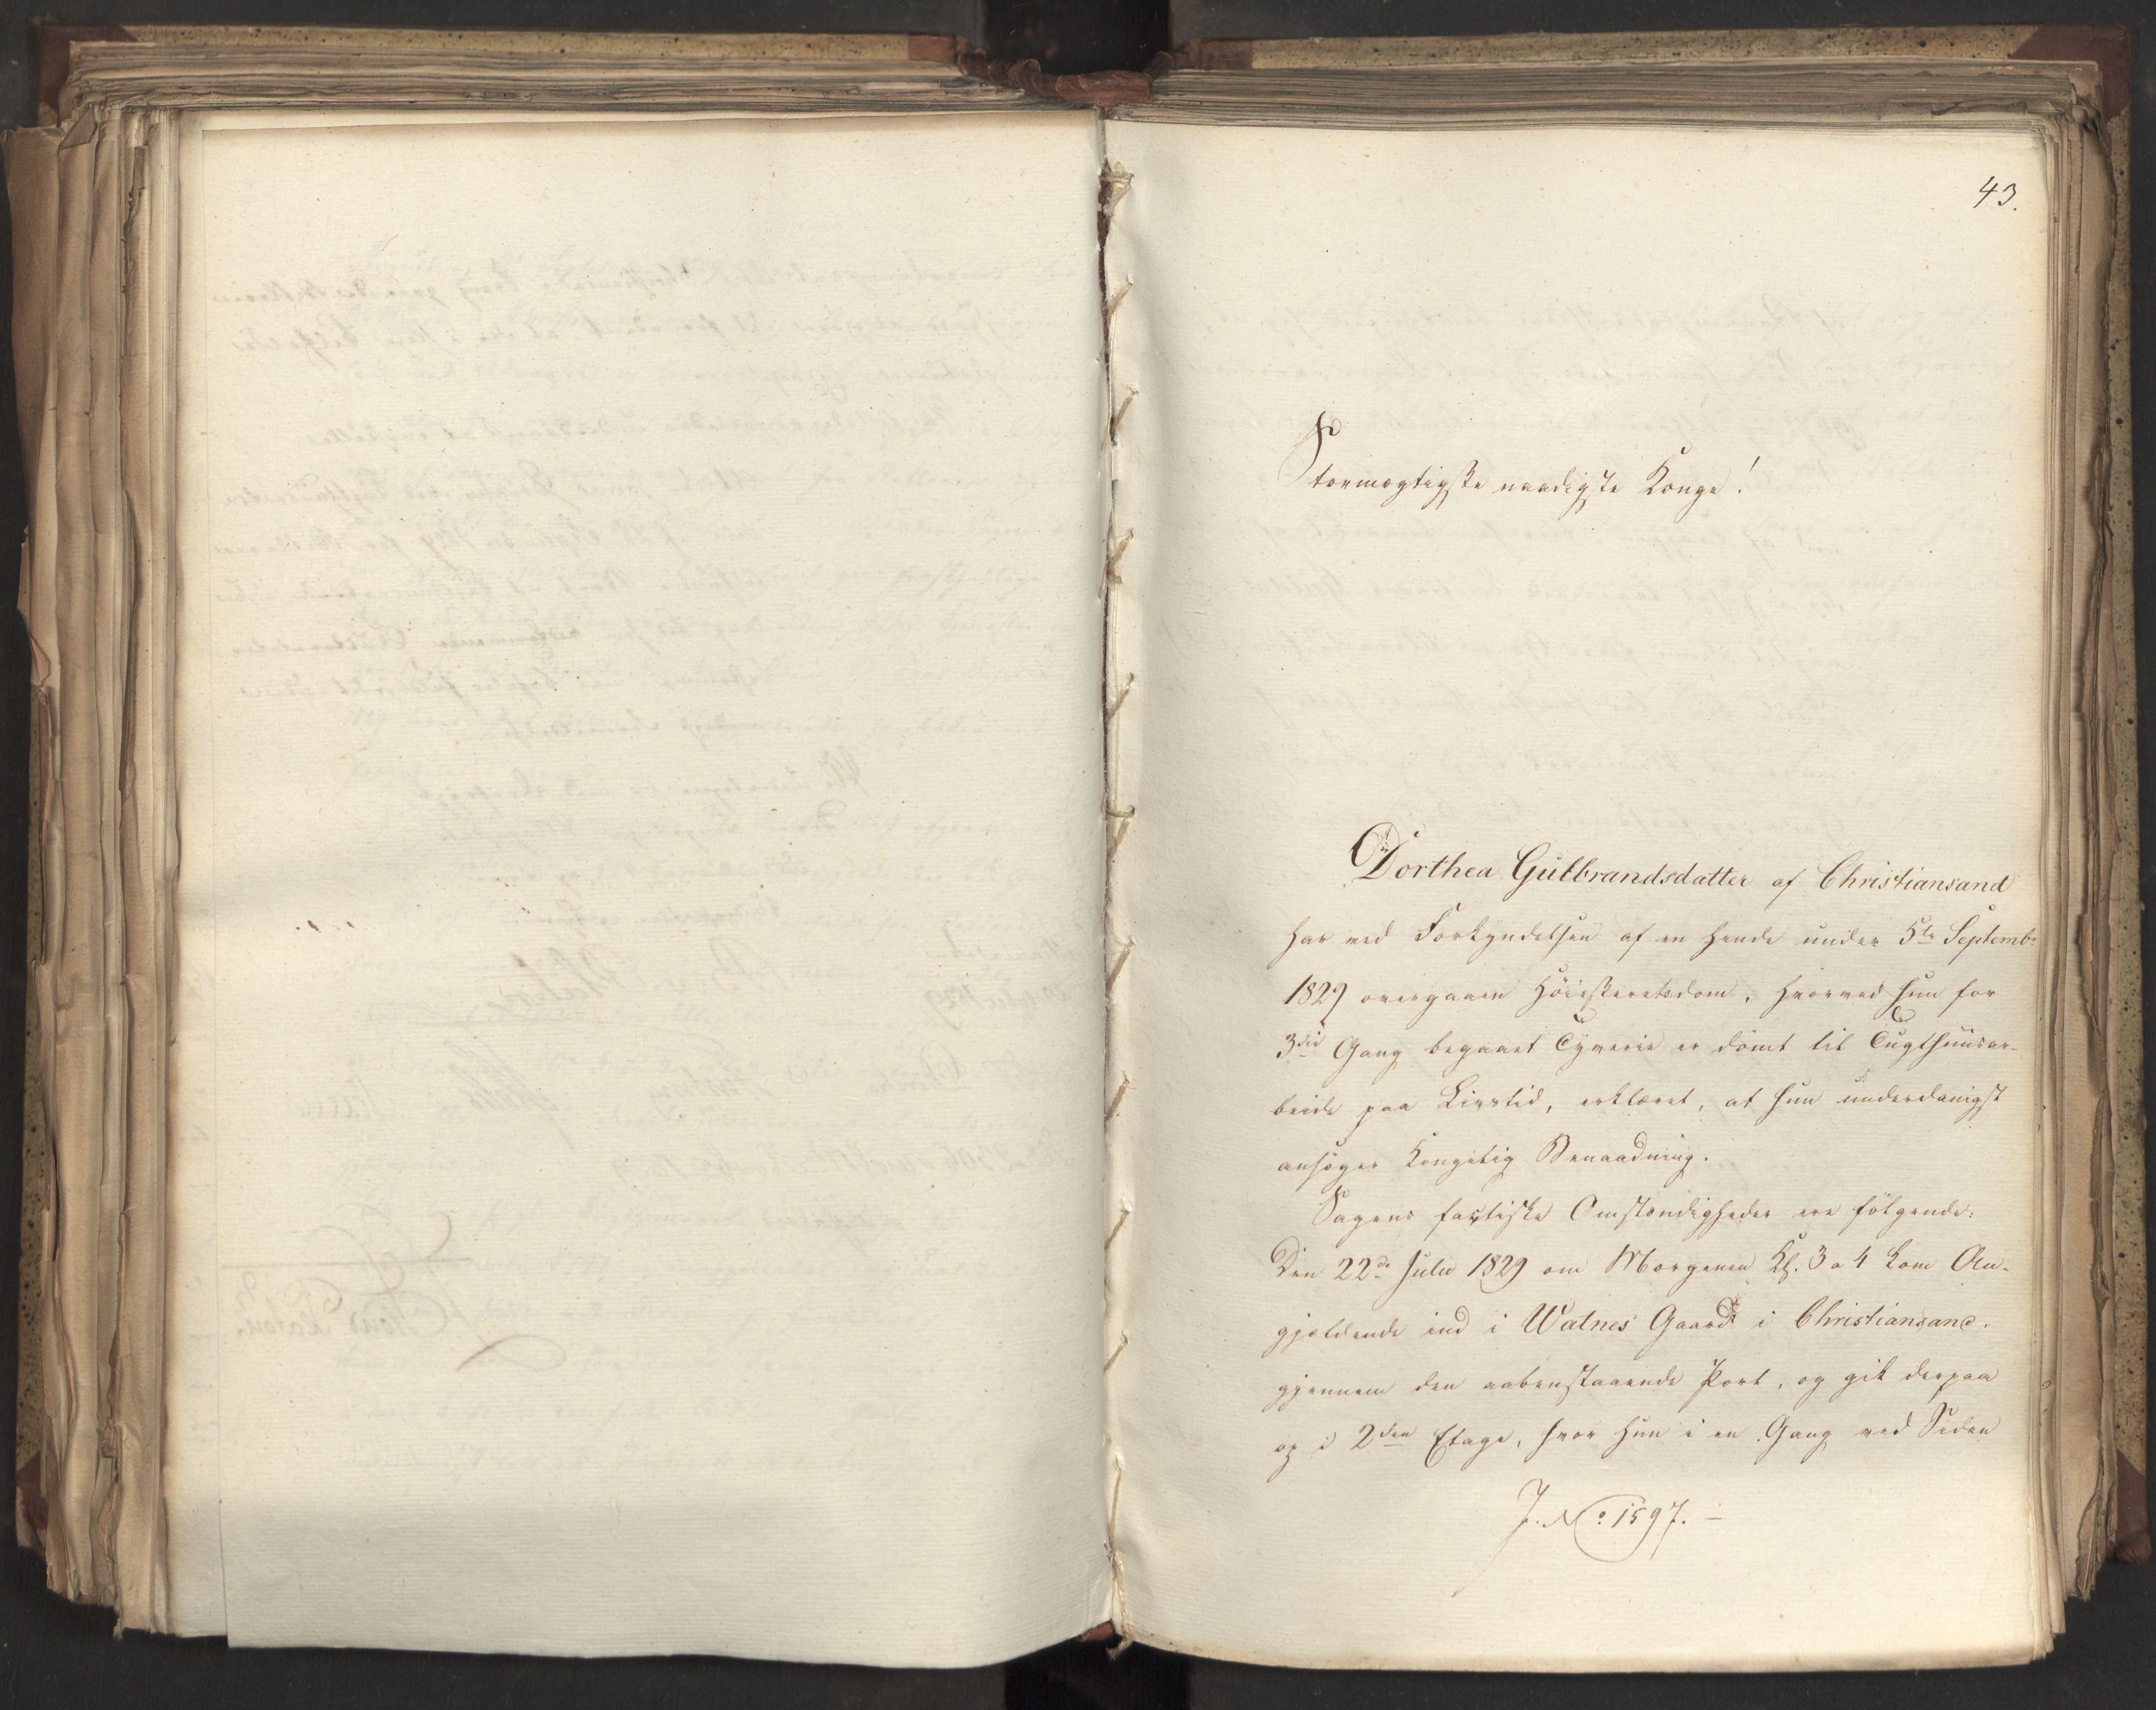 43.
Stormægtigste naadigste Konge!
Dorthea Gulbrandsdatter af Christiansand
har ved Forkyndelsen af en hende under 5te Septembr
1829 overgaaen Höiesteretsdom, hvorved hun for
3die Gang begaaet Tyverie er dömt til Tugthuusar-
beide paa Livstid, erklæret, at hun underdanigst
ansöger Kongelig Benaadning.
Sagens factiske Omstændigheder ere fölgende:
Den 22de Julii 1829 om Morgenen Kl. 3 a 4 kom An-
gjeldende ind i Watnes Gaard i Christiansand.
gjennem den aabenstaaende Port, og gik derpaa
op i 2den Etage, hvor hun i en Gang ved Siden
J. No 1597. –